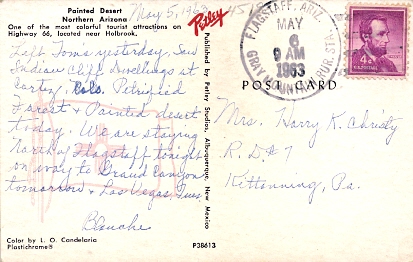 Painted Desert
Northern Arizona
One of the most colorful tourist attractions on
Highway 66, located near Holbrook.
May 5, 1963
Left Toms yesterday, Saw
Indian Cliff Dwellings at
Cortez, Colo. Petrified
Forest & Painted desert
today. We are staying
North of Flagstaff tonight
on way to Grand Canyon
tomorrow & Las Vegas, Tues.
Blanche
Color by L. O. Candelaria
Plastichrome®
Petley
Published by Petley Studios, Albuquerque, New Mexico
P38613
FLAGSTAFF, ARIZ.
MAY
6
9 AM
1963
GRAY MOUNTAIN RUR. STA.
4¢
POST CARD
Mrs. Harry K. Christy
R.D. #7
Kittanning, Pa.